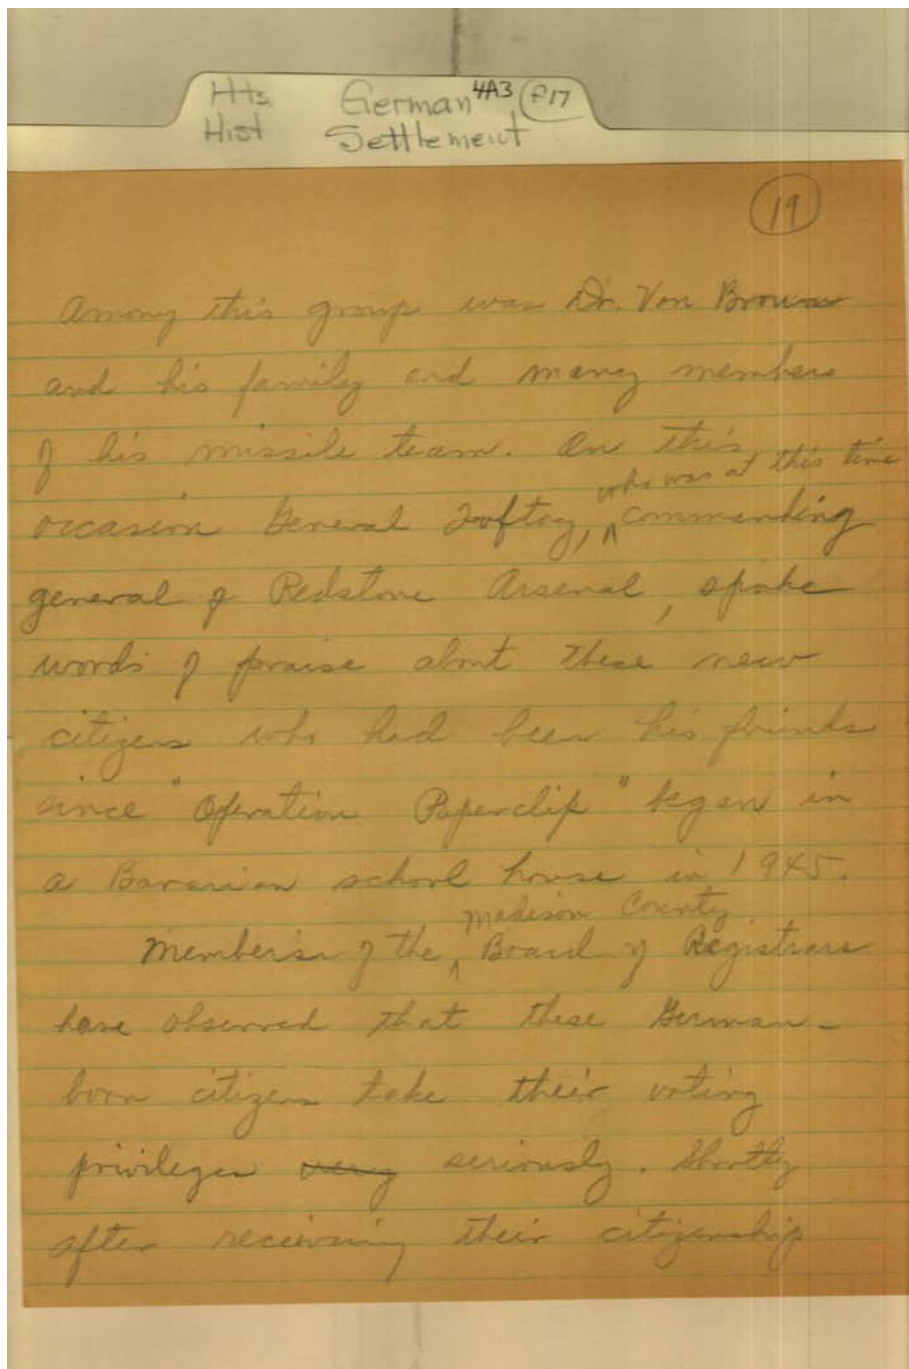 Hts. German 4A3 P17
Hist Settlement
19
Among this group was Dr. Von Braun
and his family and many members
of his missile team. On this
who was at this time
occasion General Toftoy, ^ commanding
general of Redstone Arsenal, spoke
words of praise about these new
citizens who had been his friends
since "Operation Paperclip" began in
a Bavarian school house in 1945.
Madison County
Members of the ^ Board of Registrars
have observed that these German-
born citizens take their voting
privileges very seriously. Shortly
after receiving their citizenship